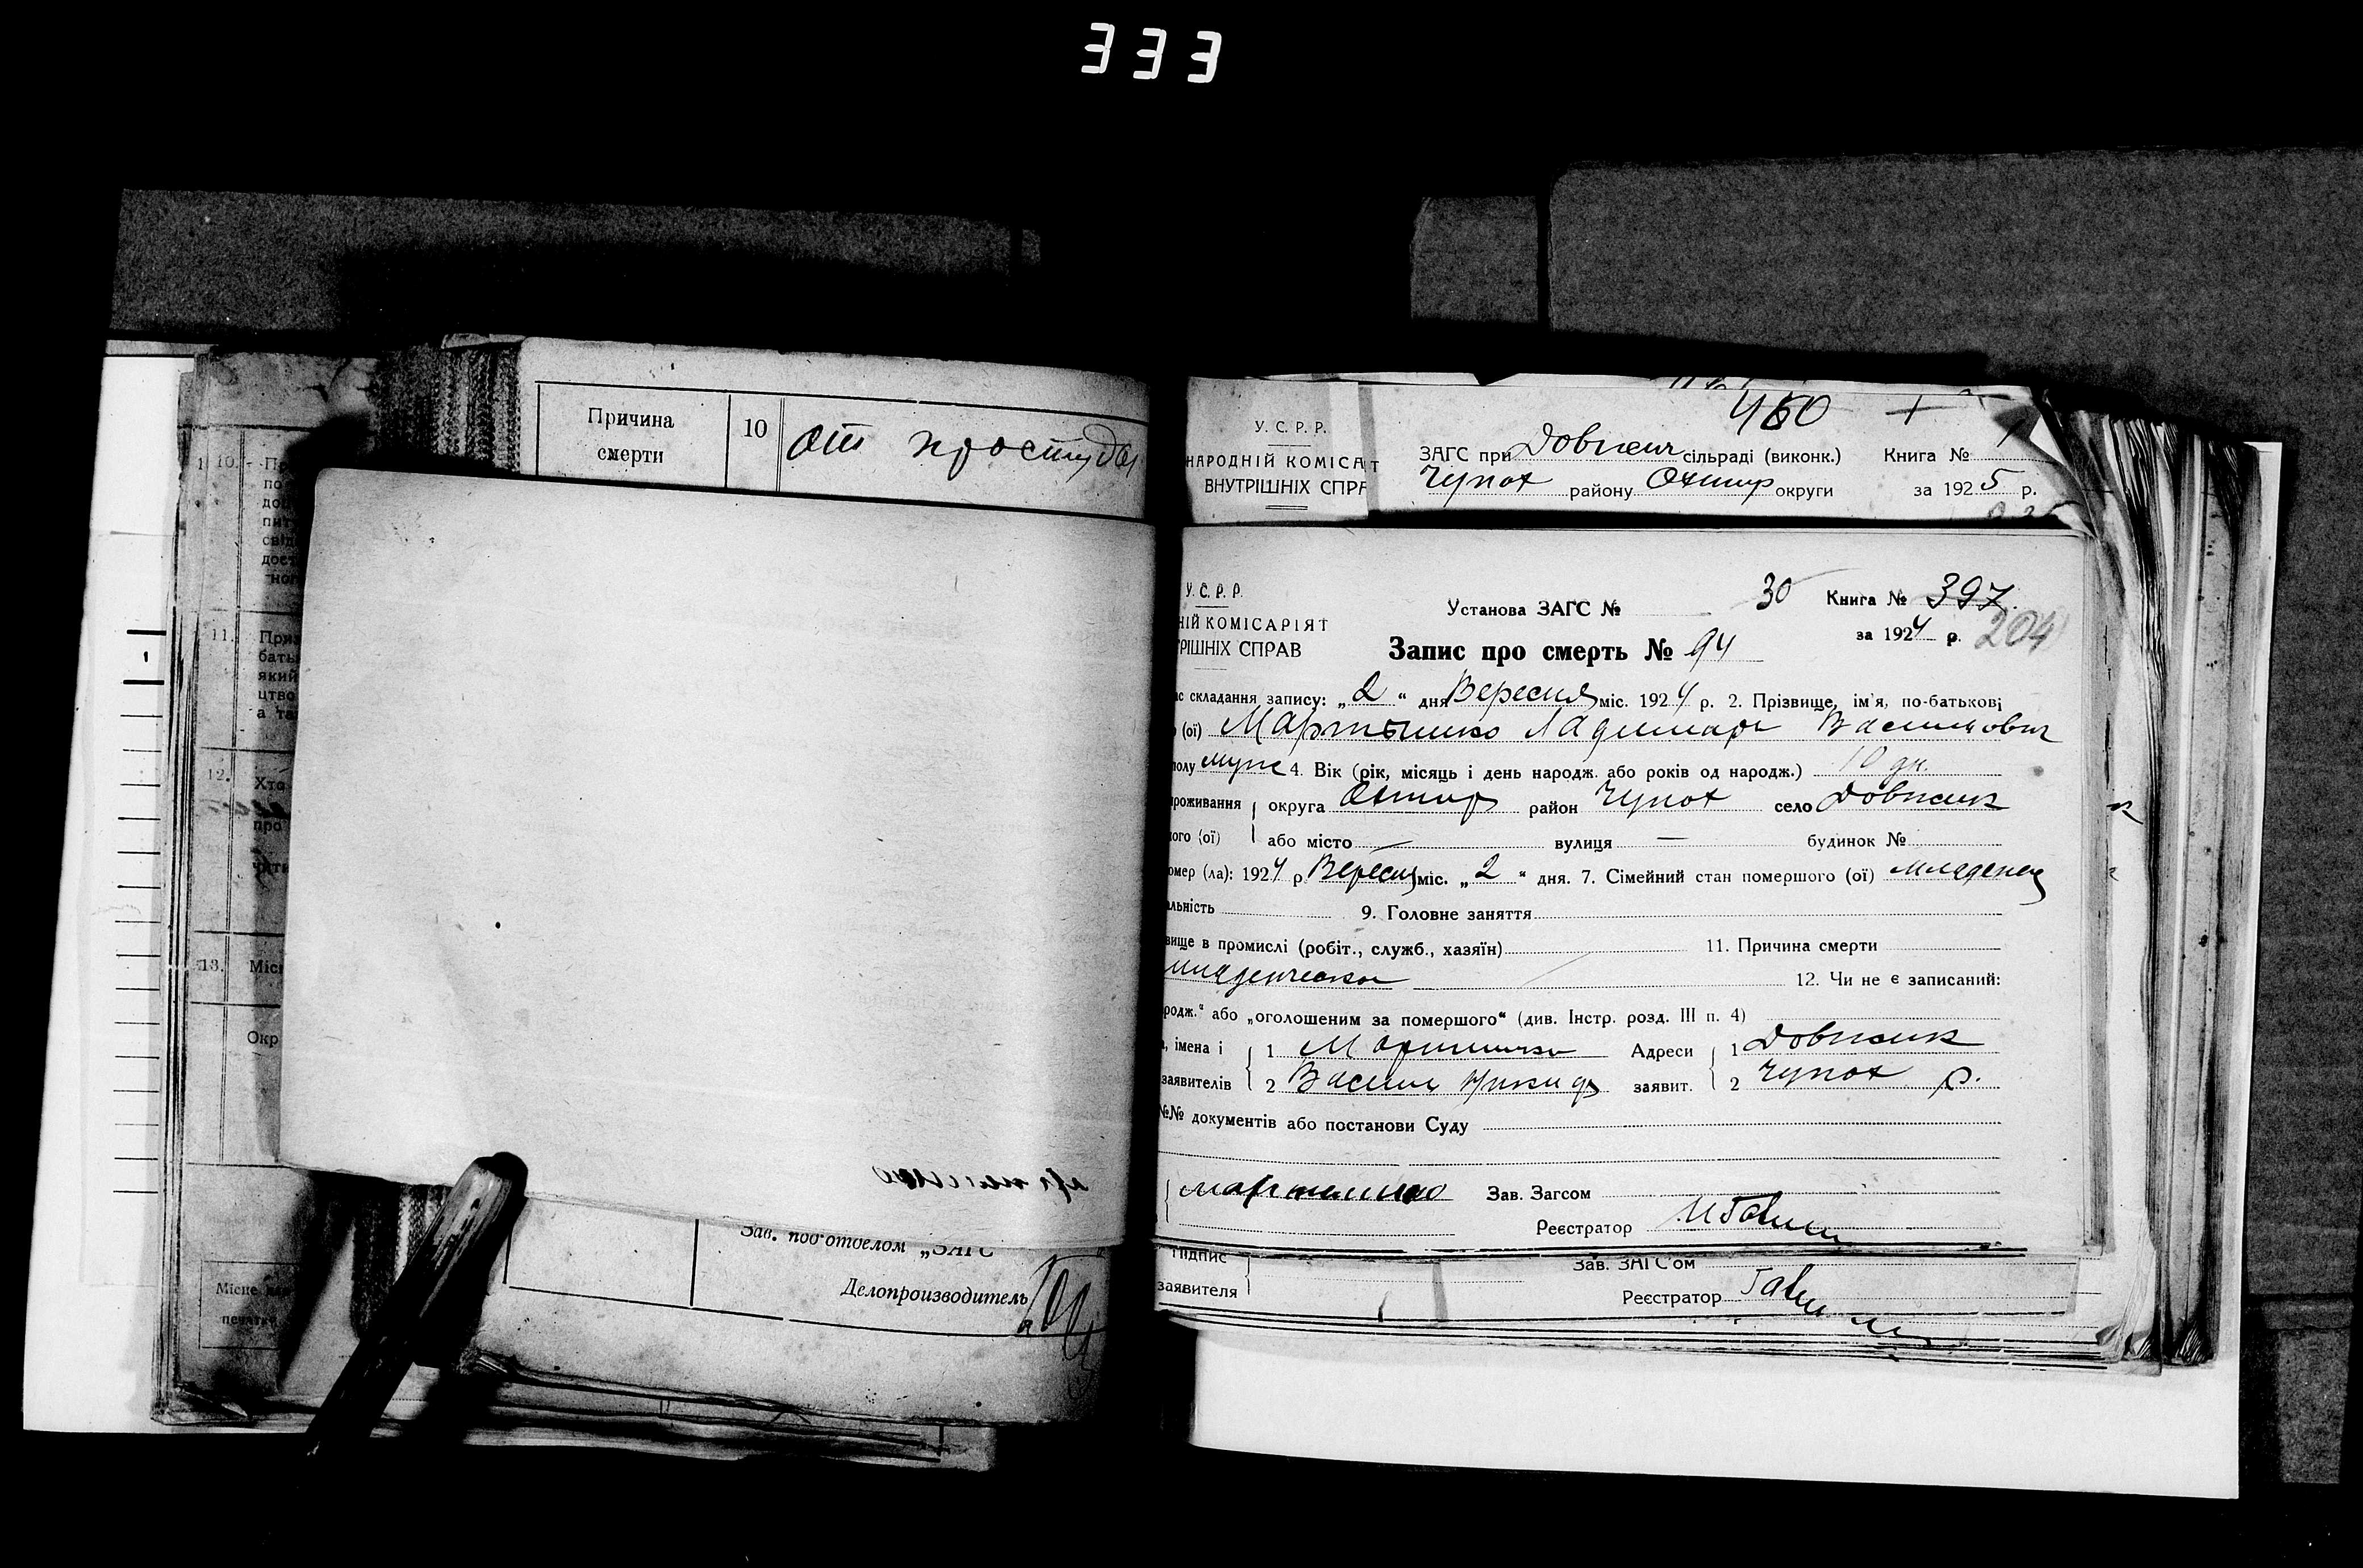 333
Причина
смерти
10
от простуды
Зав. подотделом „ЗАГС
Делопроизводитель
10.
11.
12.
Хто
13.
Окр
Місце
У. С. Р. Р.
НАРОДНІЙ КОМІСАТ
ВНУТРІШНІХ СПР
460
ЗАГС при Довжик сільраді (виконк.) Книга № 1
Чупах району Охтир округи за 1925 р.
У. С. Р. Р.
НІЙ КОМІСАРІЯТ
РІШНІХ СПРАВ
Установа ЗАГС № 30 Книга № 397
Запис про смерть № 94 за 1924 р. 204
с складання запису: „2“ дня Вересня міс. 1924 р. 2. Прізвище, ім'я, по-батькові
(ої) Мартынко Ладимир Васильович
полу муж 4. Вік (рік, місяць і день народж. або років од народж.) 10 дн.
роживання округа Охтир район Чупах село Довжик
ого (ої) або місто — вулиця — будинок №
омер (ла): 1924 р Вересня міс. „2“ дня. 7. Сімейний стан помершого (ої) младенец
альність 9. Головне заняття
вище в промислі (робіт., служб., хазяїн) 11. Причина смерти
младенческая 12. Чи не є записаний:
родж.“ або „оголошеним за помершого“ (див. Інстр. розд. III п. 4)
, імена і 1 Адреси 1 Довжик
заявителів 2 Василь Никид заявит. 2 Чупах р.
№№ документів або постанови Суду
Зав. Загсом
Реєстратор
Підпис Зав. ЗАГС'ом
заявителя Реєстратор